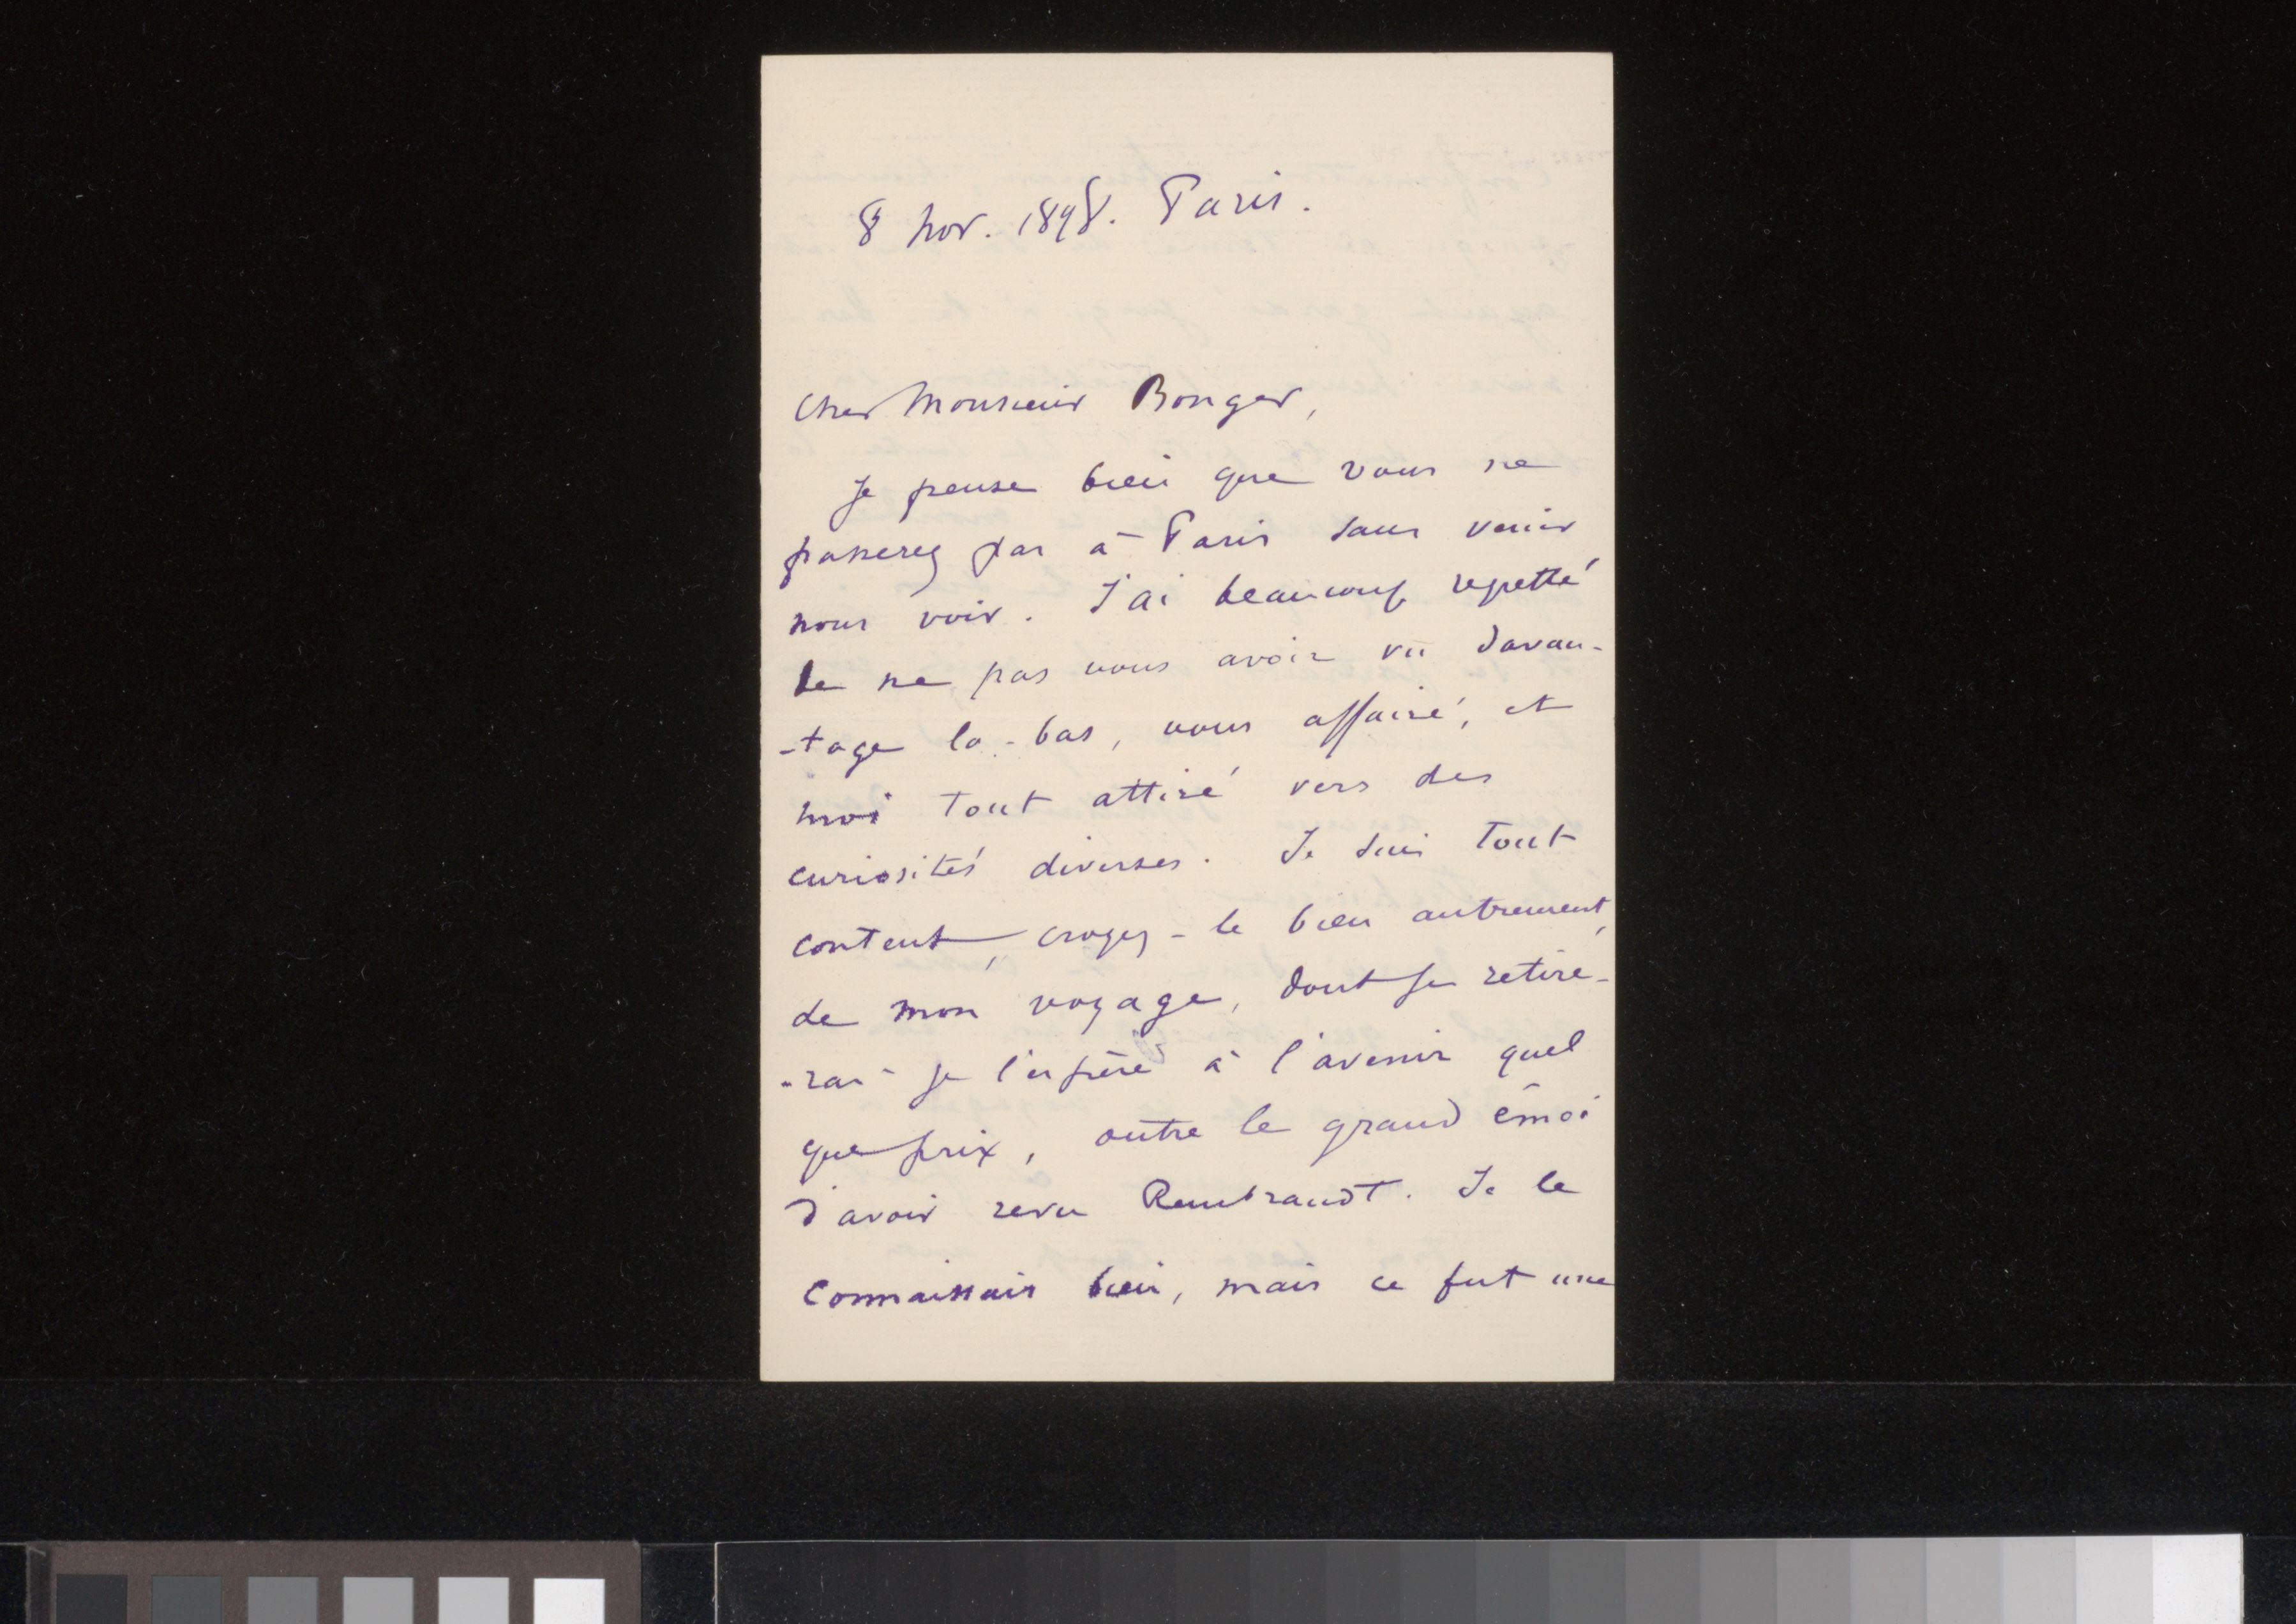 8 nov. 1898. Paris.
Cher Monsieur Bonger,
Je pense bien que vous ne
passerez pas à Paris sans venir
nous voir. J'ai beaucoup regretté
de ne pas vous avoir vu davan-
-tage là-bas, vous affairé, et
moi tout attiré vers des
curiosités diverses. Je suis tout
content, croyez-le bien autrement,
de mon voyage, dont je retire-
-rai je l'espère à l'avenir quel
que prix, outre le grand émoi
d'avoir revu Rembrandt. Je le
connaissais bien, mais ce fut une